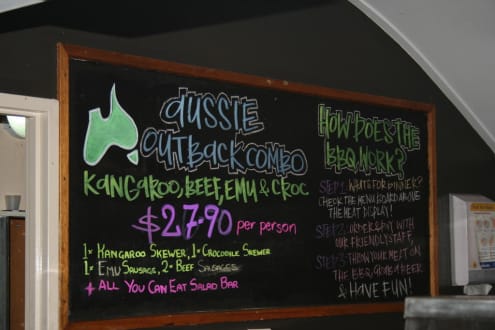 AUSSIE
OUTBACK COMBO
KANGAROO, BEEF, EMU & CROC
$27.90 per person
1x KANGAROO SKEWER, 1x CROCODILE SKEWER
1x EMU SAUSAGE, 2x BEEF SAUSAGES
+ ALL YOU CAN EAT SALAD BAR
HOW DOES THE
BBQ WORK?
STEP 1: WHAT'S FOR DINNER?
CHECK THE MENU BOARD ABOVE
THE MEAT DISPLAY!
STEP 2: ORDER & PAY WITH
OUR FRIENDLY STAFF,
STEP 3: THROW YOUR MEAT ON
THE BBQ, GRAB A BEER
& HAVE FUN!